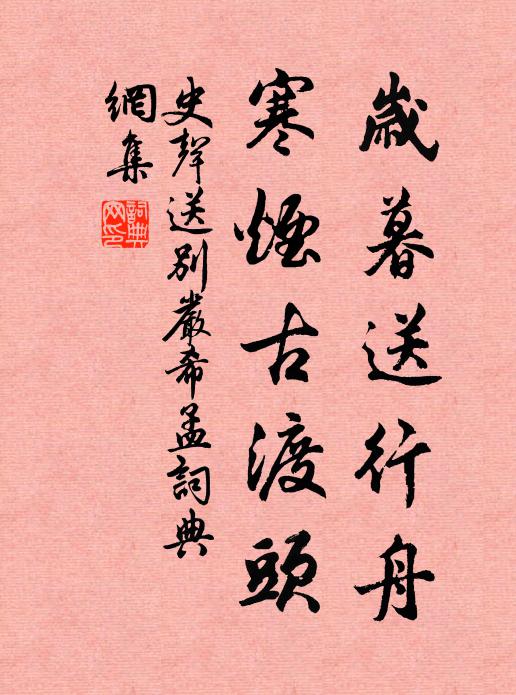 歲暮送行舟
寒煙古渡頭
史聲送別嚴希孟詞典
網集
詞典網印